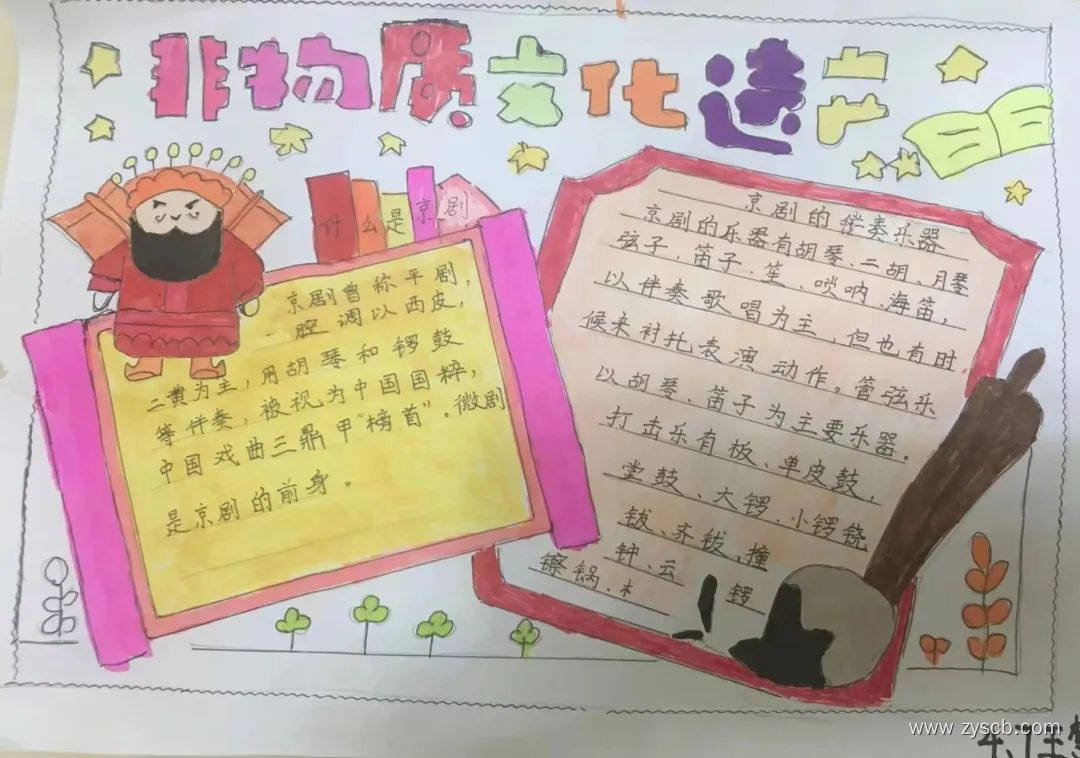 非物质文化遗产
什么是京剧
京剧曾称平剧，
腔调以西皮，
二黄为主，用胡琴和锣鼓
等伴奏，被视为中国国粹，
中国戏曲三鼎甲“榜首”。微剧
是京剧的前身。
京剧的伴奏乐器
京剧的乐器有胡琴、二胡、月琴
弦子、笛子、笙、唢呐、海笛，
以伴奏歌唱为主，但也有时
候来衬托表演动作。管弦乐
以胡琴、笛子为主要乐器。
打击乐有板、单皮鼓，
堂鼓、大锣、小锣铙
钹、齐钹、撞
钟、云
锣
镲锅、木
www.zyscb.com